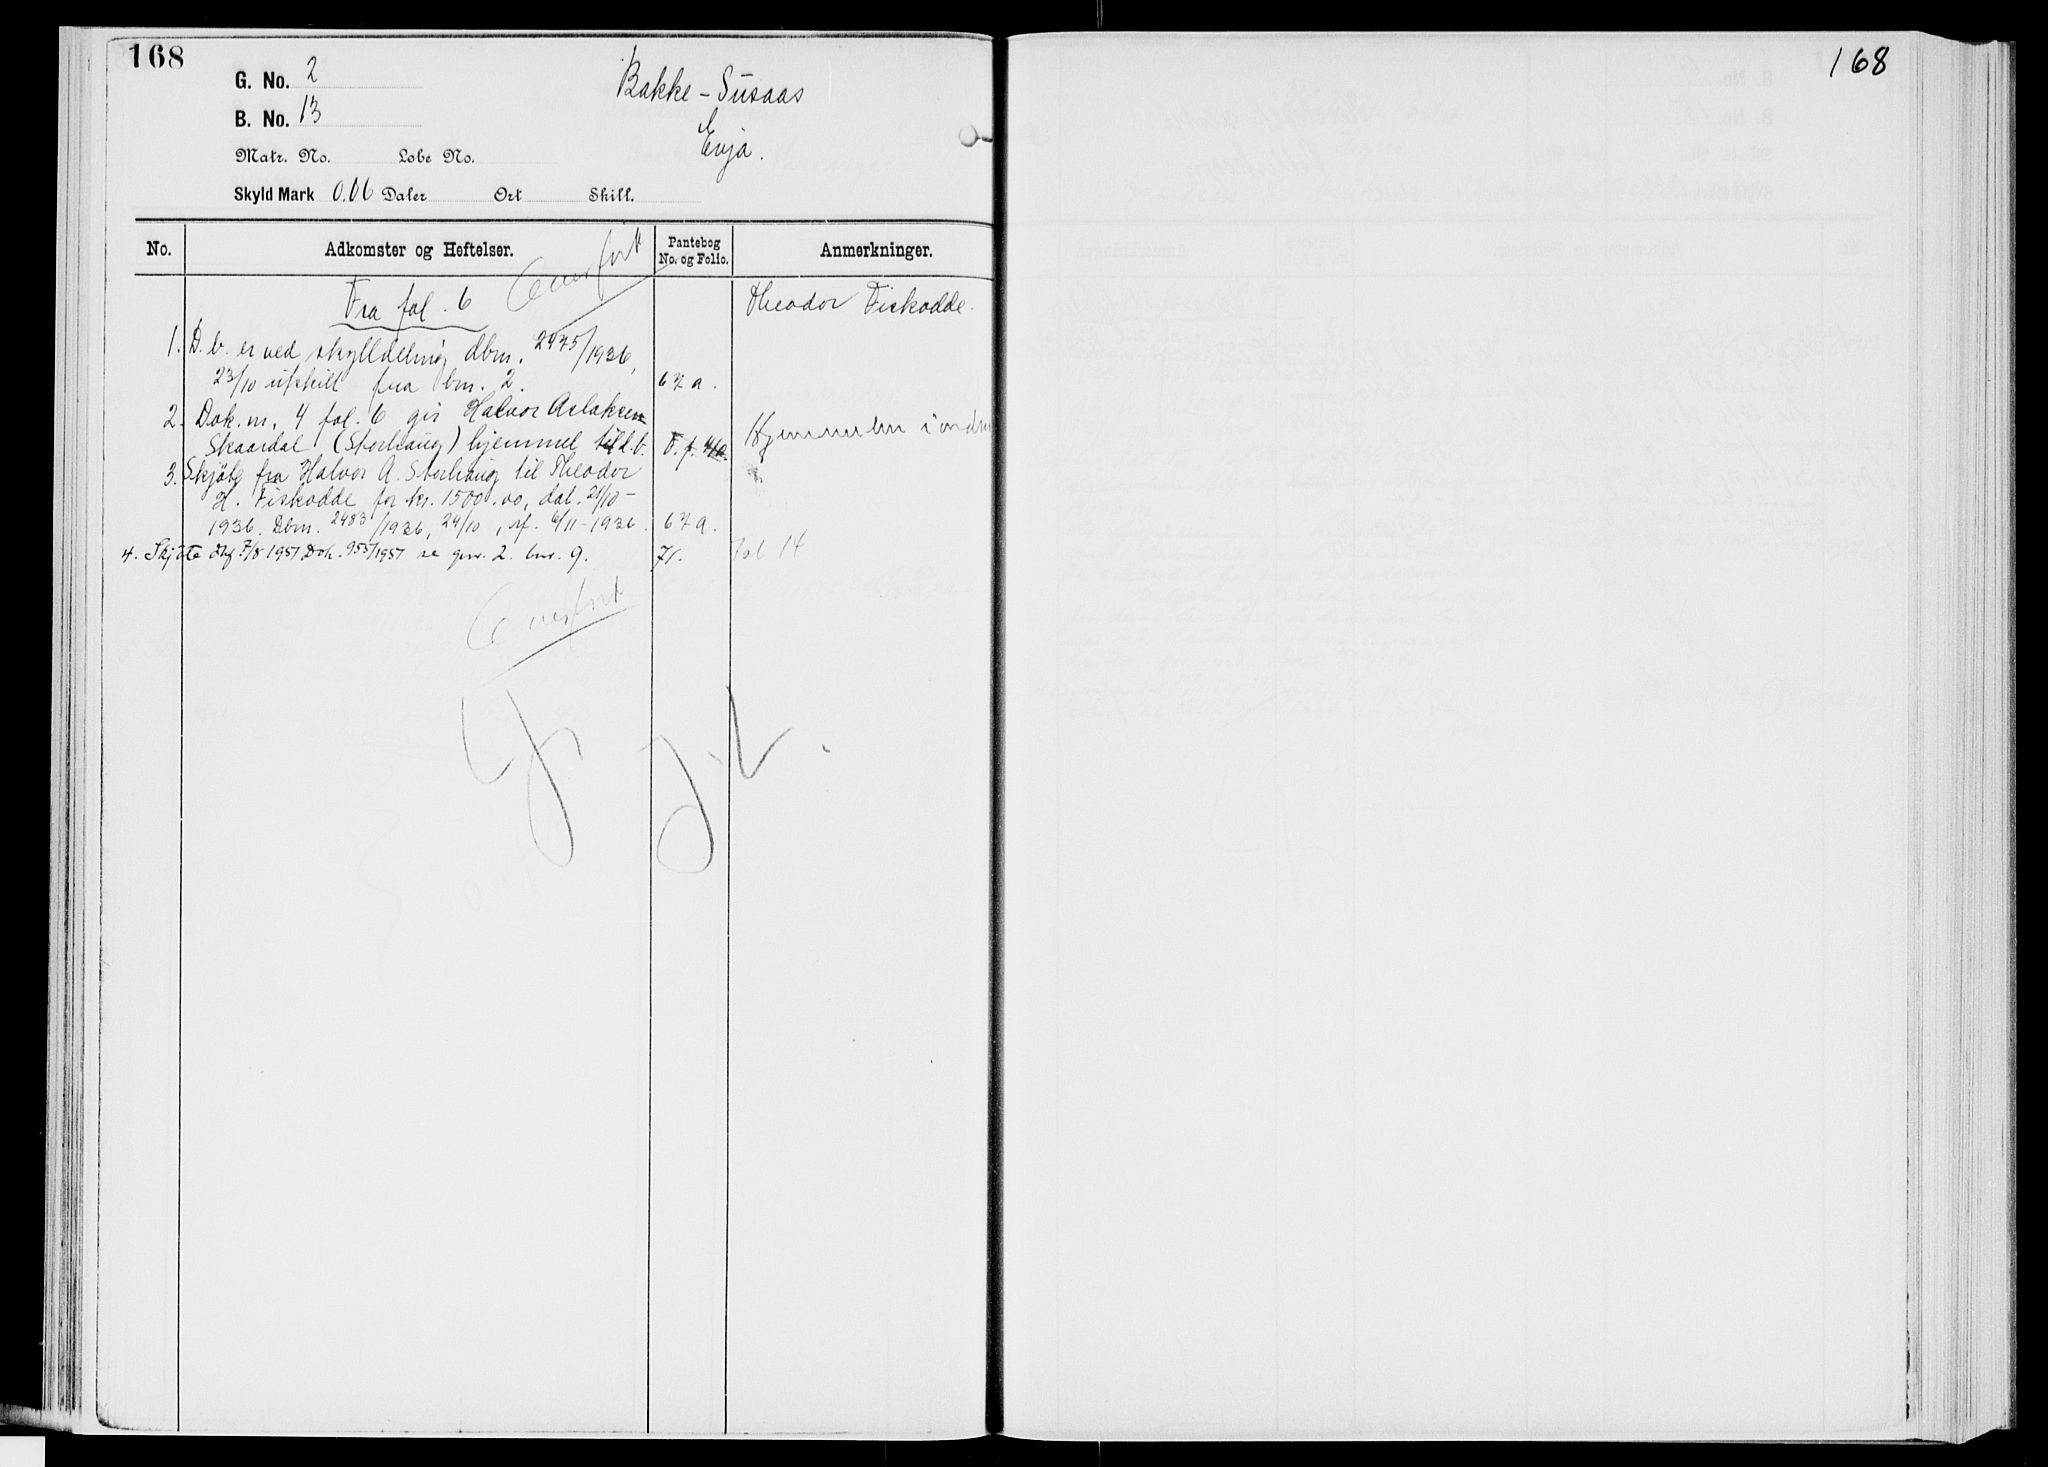 168
168
G. No. 2
Bakke - Susaas
B. No. 13
Evja.
Matr. No. Løbe No.
Skyld Mark 0.06 Daler Ort Skill.
No. Adkomster og Heftelser. Pantebog No. og Folio. Anmerkninger.
Overført
Fra fol. 6 Theodor Fiskodde.
1. D. b. er ved skylldeling dbnr. 2475/1936,
23/10 utskilt fra bnr. 2. 67 a.
2. Dok. nr. 4 fol. 6 gir Halvor Aslaksen
Skaardal (Storhaug) hjemmel til d. b. Hjemmelen i orden
3. Skjøte fra Halvor A. Storhaug til Theodor
H. Fiskodde for kr. 1500.00, dat. 21/10 -
1936. Dbnr. 2483/1936, 24/10, 6/11 - 1936. 67 a.
4. Skjøte 7/8 1951 Dok. 955/1951 se gnr. 2. bnr. 9. 71. fol 14
Overført